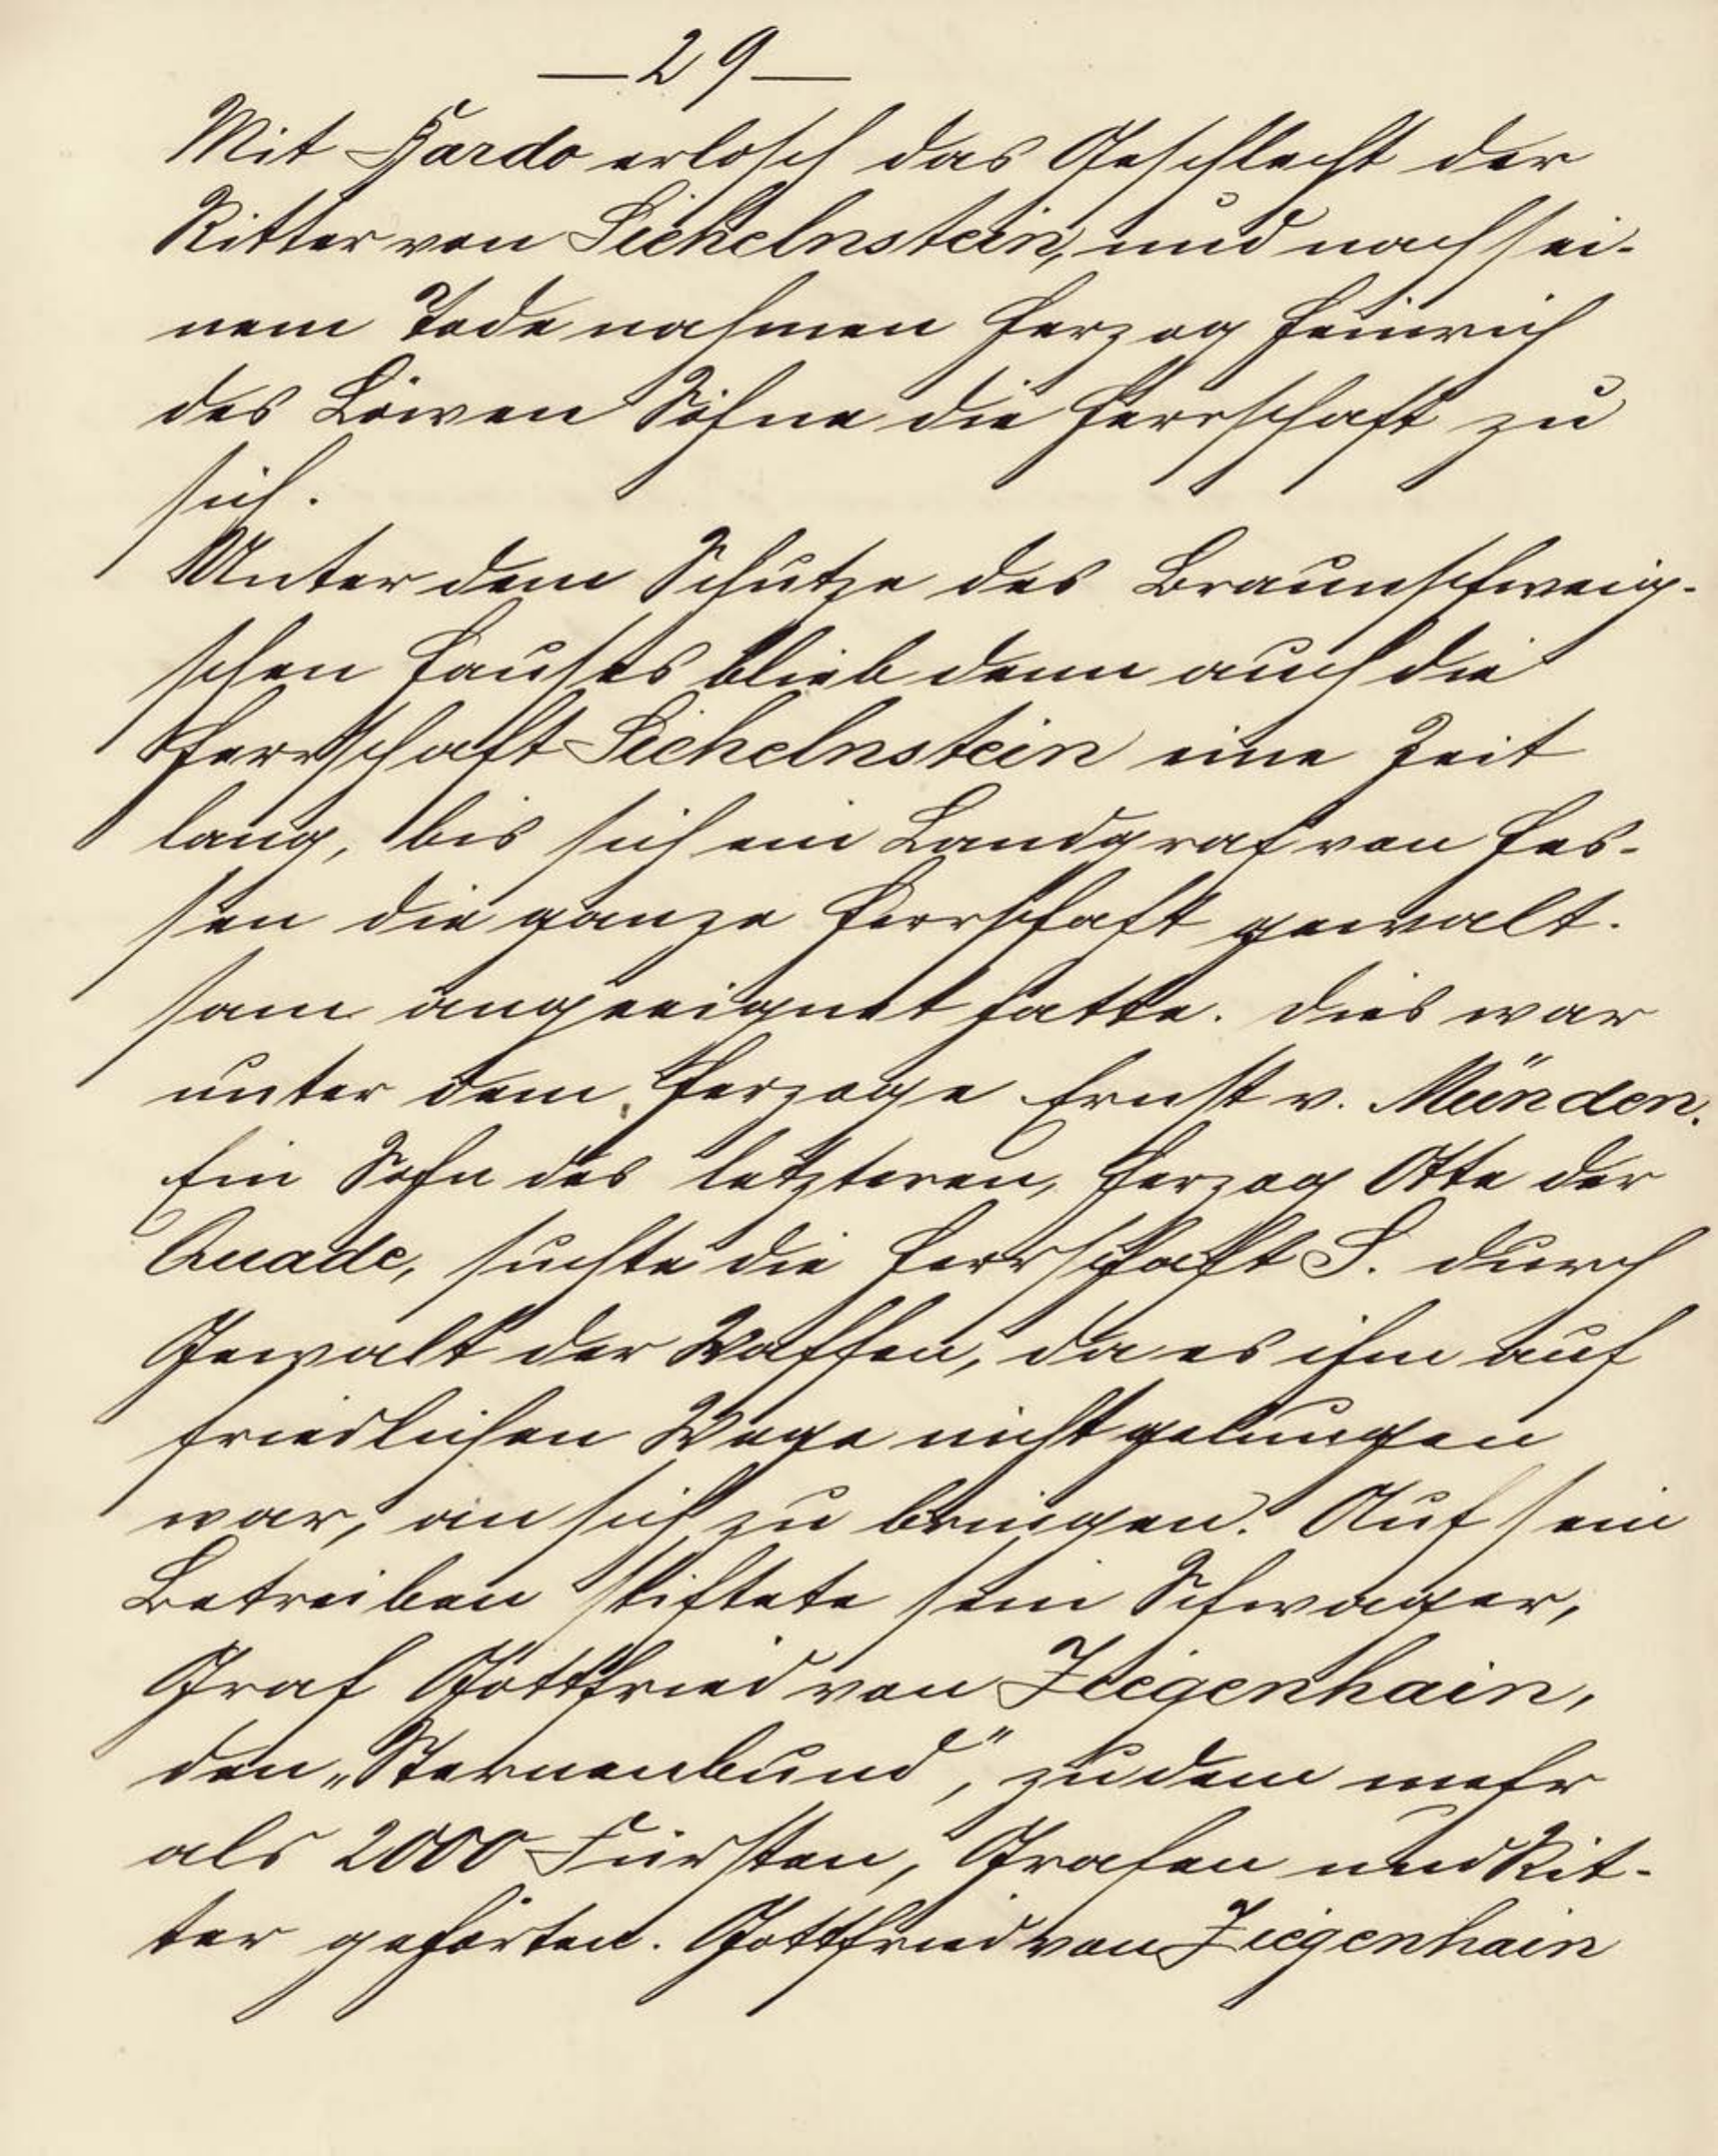 — 29 —
Mit Bardo erlosch das Geschlecht der
Ritter von Sichelnstein, und nach sei-
nem Tode nahmen Herzog Heinrich
des Löwen Söhne die Herrschaft zu
sich.
Unter dem Schutze des Braunschweig-
schen Hauses blieb denn auch die
Herrschaft Sichelnstein eine Zeit
lang, bis sich ein Landgraf von Hes-
sen die ganze Herrschaft gewalt-
sam angeeignet hatte. Dies war
unter dem Herzoge Ernst v. Münden.
Ein Sohn des letzteren, Herzog Otto der
Quade, suchte die Herrschaft S. durch
Gewalt der Waffen, da es ihm auf
friedlichen Wege nicht gelungen
war, an sich zu bringen. Auf sein
Betreiben stiftete sein Schwager,
Graf Gottfried von Ziegenhain,
den „Sternenbund", zu dem mehr
als 2000 Fürsten, Grafen und Rit-
ter gehörten. Gottfried von Ziegenhain